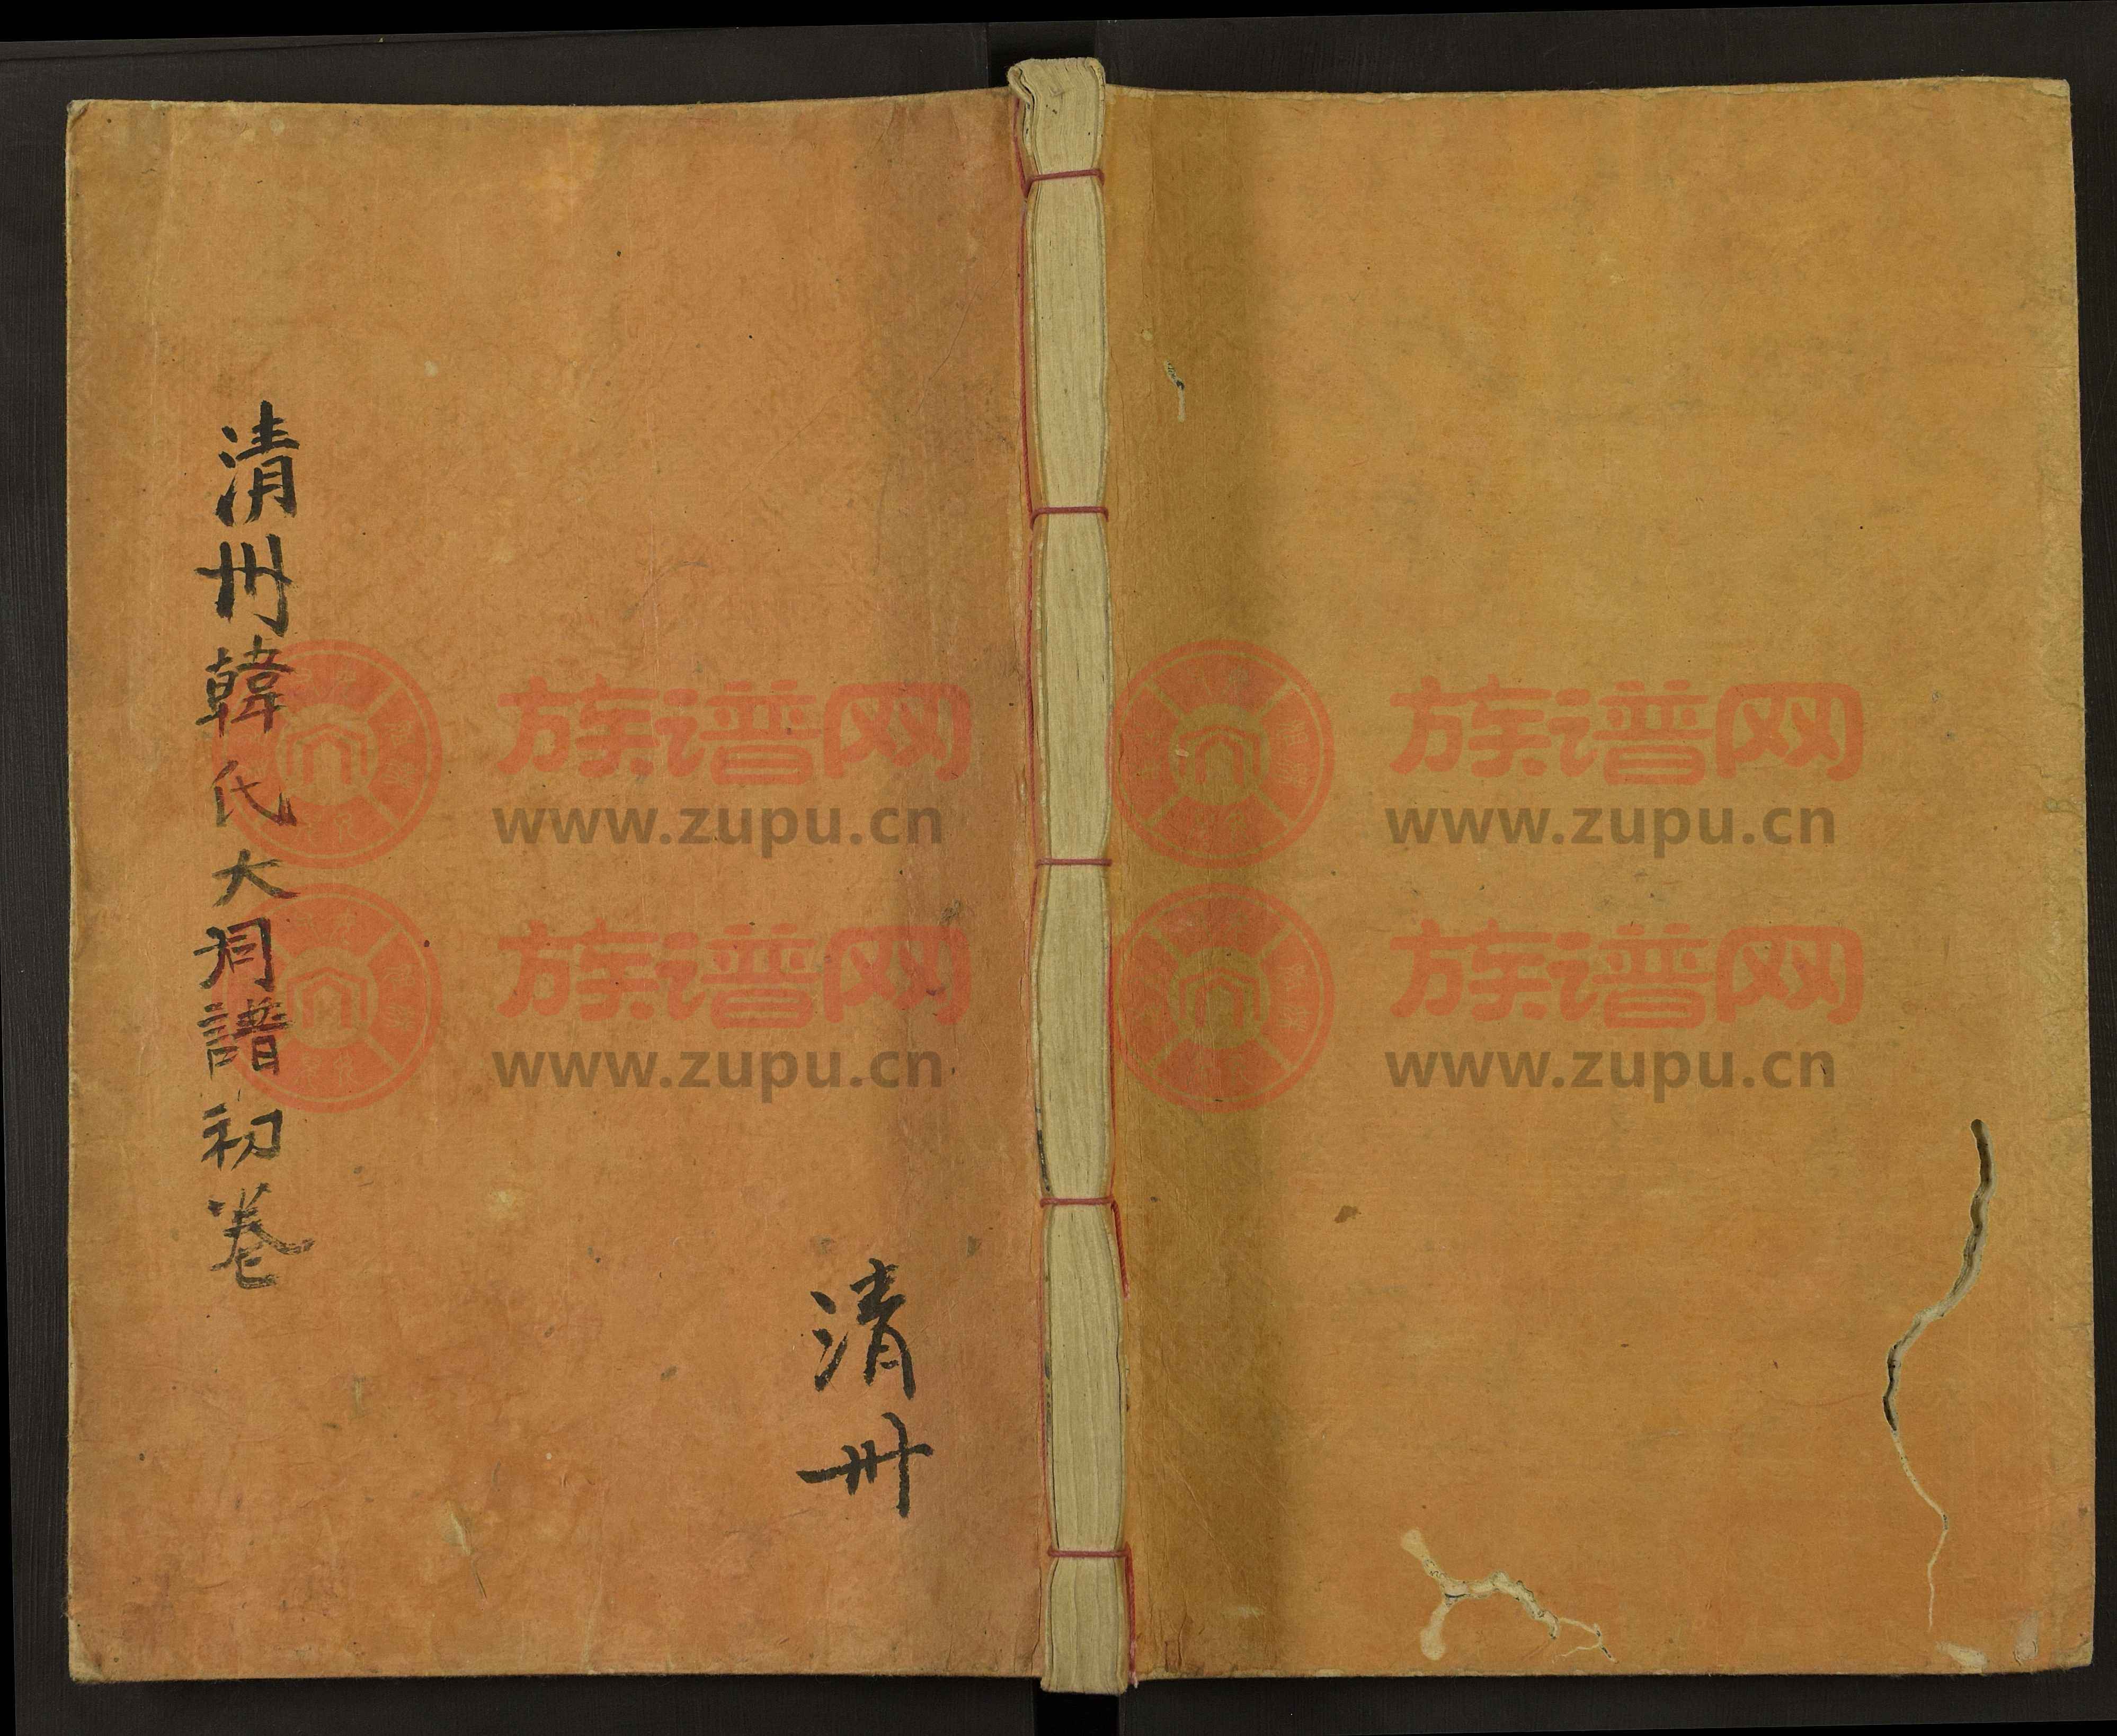 清州韓氏大同譜初卷
清州
族谱网
www.zupu.cn
族谱网
www.zupu.cn
族谱网
www.zupu.cn
族谱网
www.zupu.cn